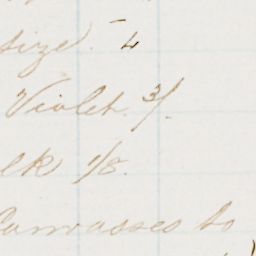 size. 4
Violet. 3/.
lk 1/8.
Canvasses to